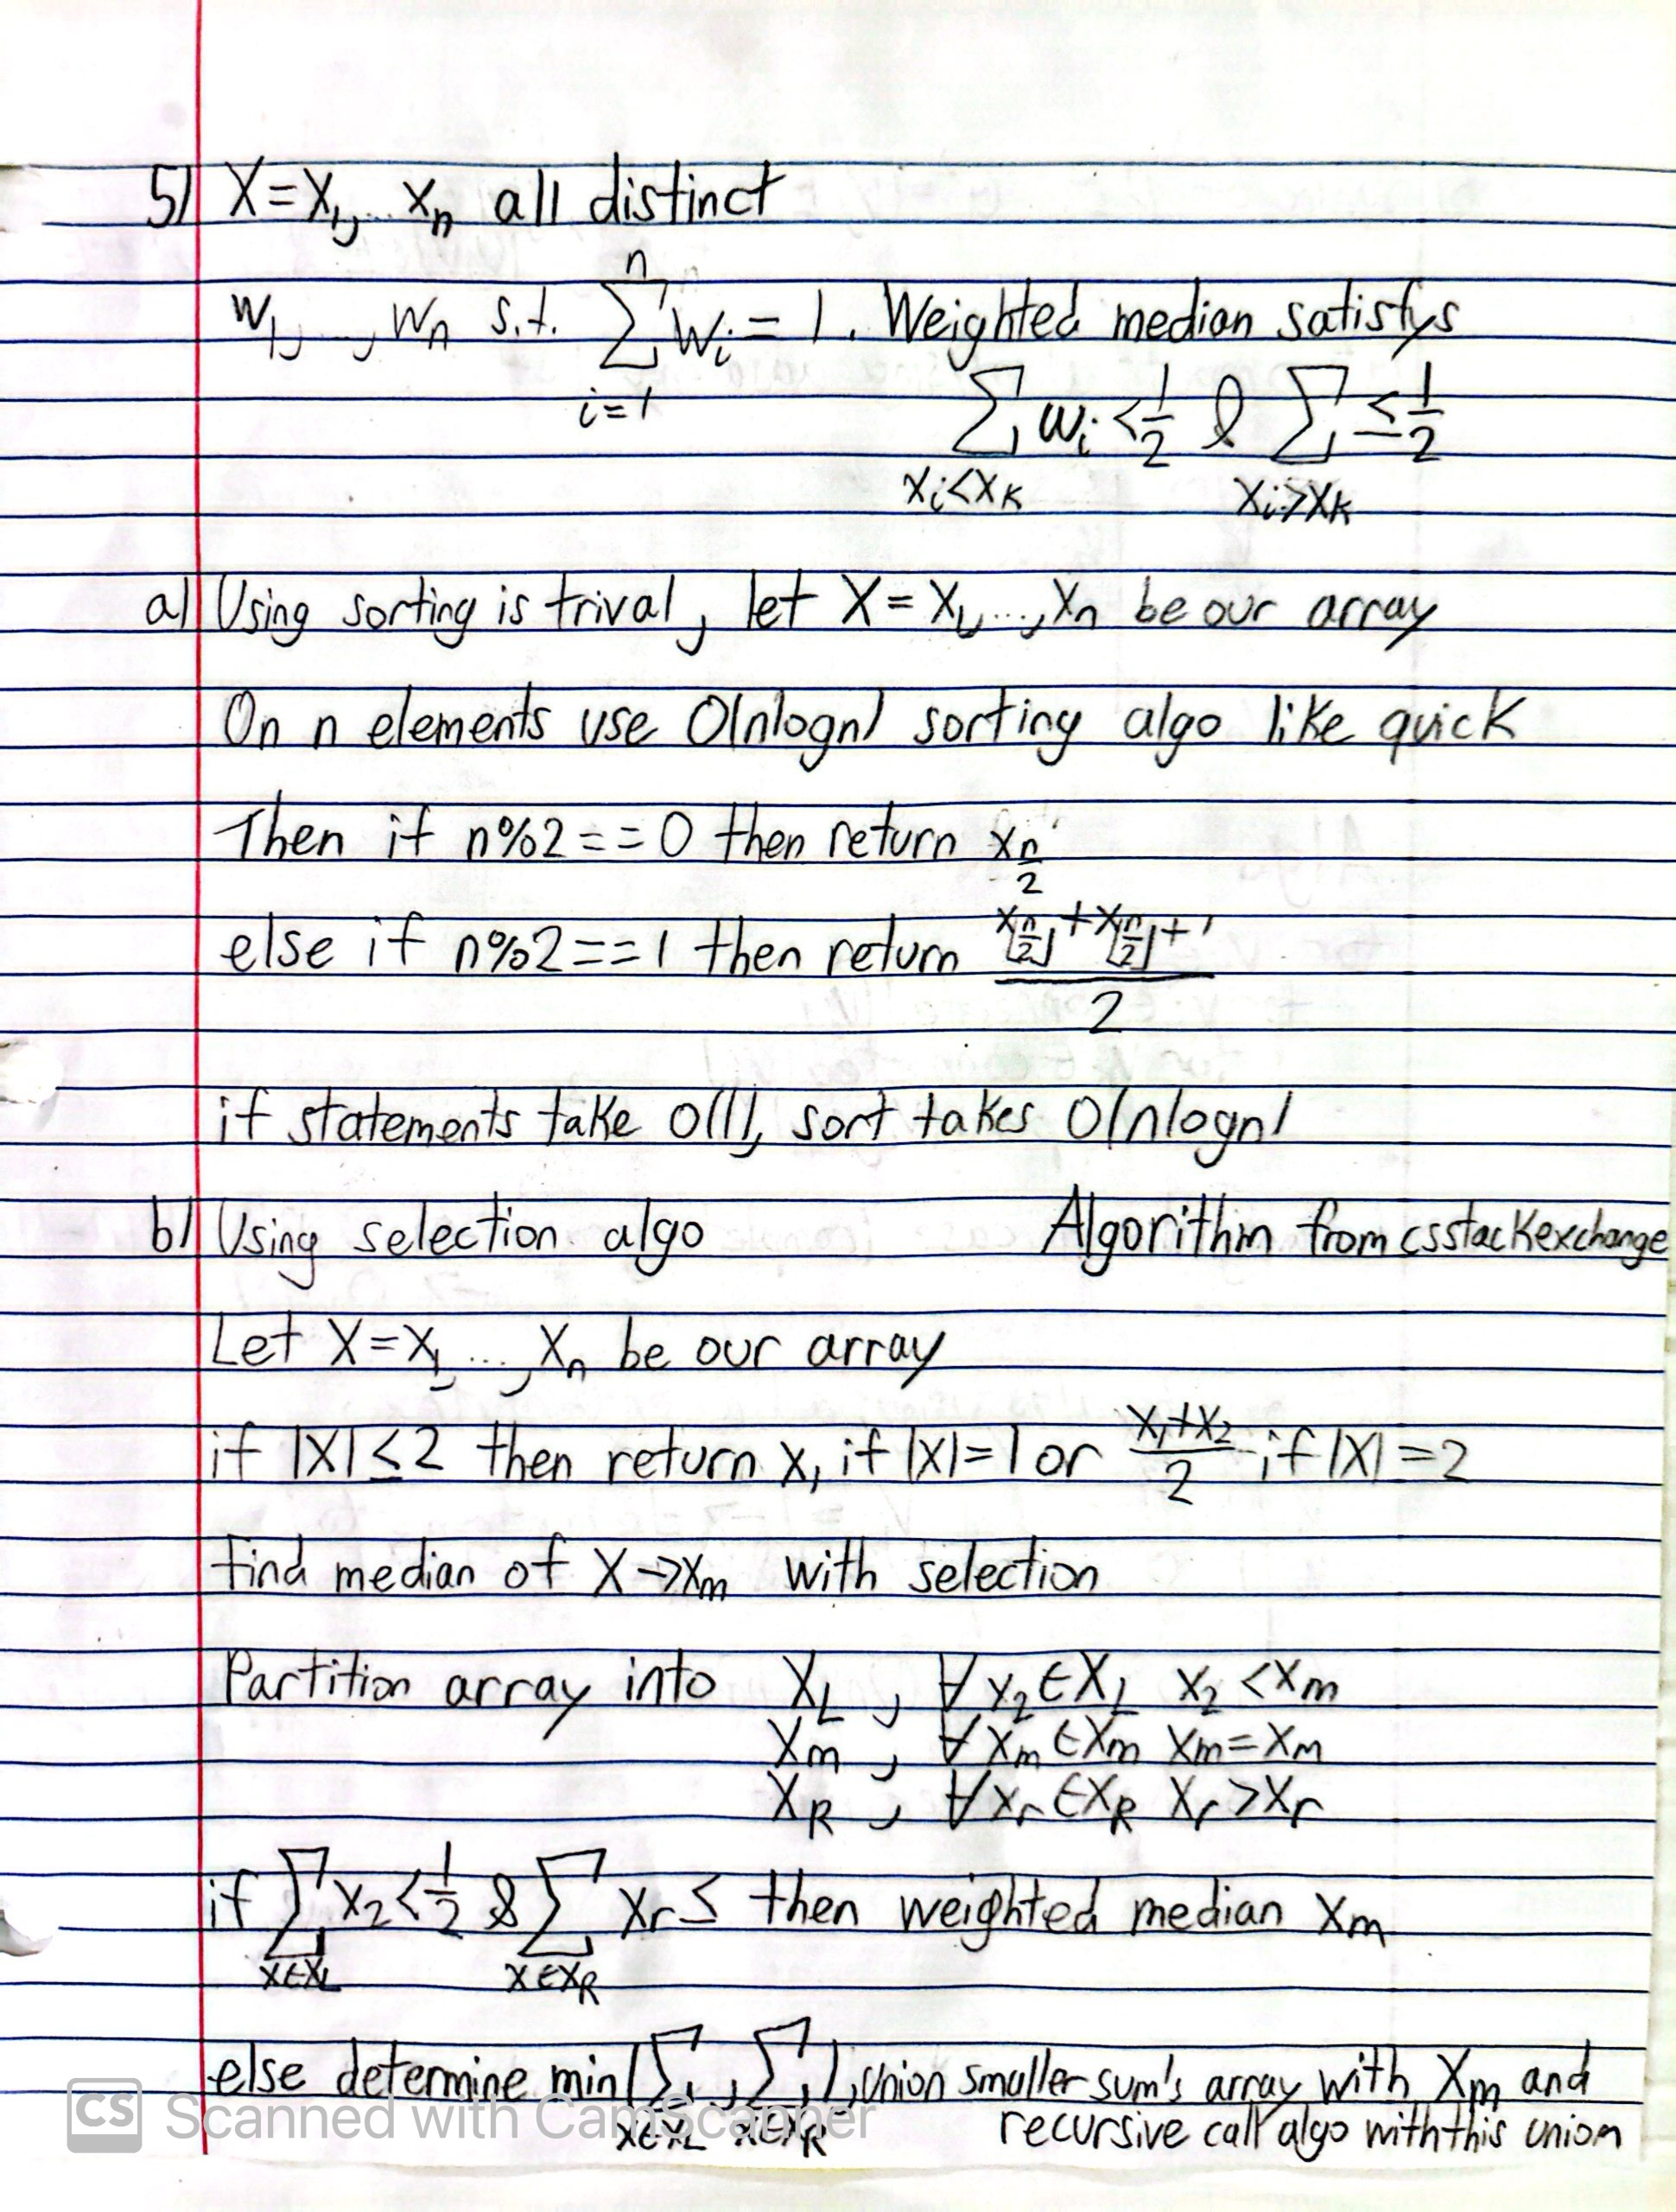 5) X=X₁,... Xₙ all distinct
W₁,...,Wₙ s.t. ∑ᵢ₌₁ⁿ Wᵢ = 1. Weighted median satisfys
∑_{Xᵢ<X_K} Wᵢ < 1/2 & ∑_{Xᵢ>X_K} ≤ 1/2
a) Using sorting is trival, let X = X₁,...,Xₙ be our array
On n elements use O(nlogn) sorting algo like quick
Then if n%2==0 then return X_{n/2}
else if n%2==1 then return (X_{⌊n/2⌋}+X_{⌊n/2⌋+1})/2
if statements take O(1), sort takes O(nlogn)
b) Using selection algo Algorithm from csstackexchange
Let X=X₁,...,Xₙ be our array
if |X|≤2 then return X₁ if |X|=1 or (X₁+X₂)/2 if |X|=2
find median of X→Xm with selection
Partition array into X_L, ∀ X₂∈X_L X₂<Xm
Xm, ∀ Xm∈Xm Xm=Xm
X_R, ∀ Xr∈X_R Xr>Xr
if ∑_{X∈X_L} X₂ < 1/2 & ∑_{X∈X_R} Xr ≤ then weighted median Xm
else determine min(∑_{X∈X_L}, ∑_{X∈X_R}), union smaller sum's array with Xm and
recursive call algo with this union
CS Scanned with CamScanner